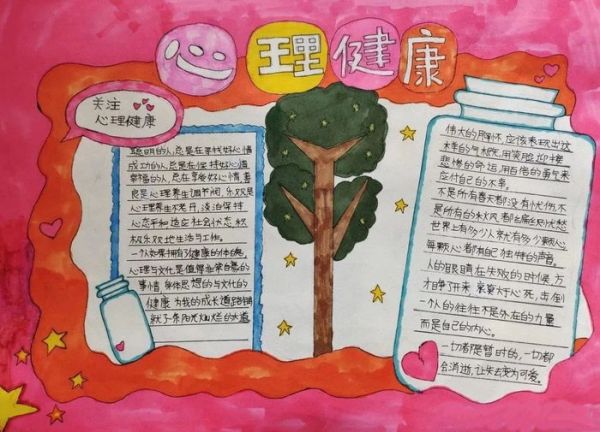 心理健康
关注
心理健康
聪明的人,总是在寻找好心情
成功的人,总是在保持好心情
幸福的人,总在享受好心情,善
良是心理养生调节阀,乐观是
心理养生不老丹,淡泊保持
心态平和适应社会状态,积
极乐观地生活与工作。
一个人如果拥有了健康的体魄,
心理与文化是值得非常自豪的
事情,身体思想的与文化的
健康,为我的成长道路铺
就了一条阳光灿烂的大道
伟大的胸怀,应该表现出这
样的气概,用笑脸迎接
悲惨的命运,用百倍的勇气来
应付自己的不幸。
不是所有春天都没有忧伤,不
是所有的秋风,都飘落烦恼忧愁
世界上有多少人,就有多少颗心
每颗心都有自己独伴的声音。
人的眼睛在失败的时候,方
才睁了开来,哀莫大于心死,击倒
一个人的往往不是外在的力量
而是自己的内心。
一切都是暂时的,一切都
会消逝,让失去变为可爱。